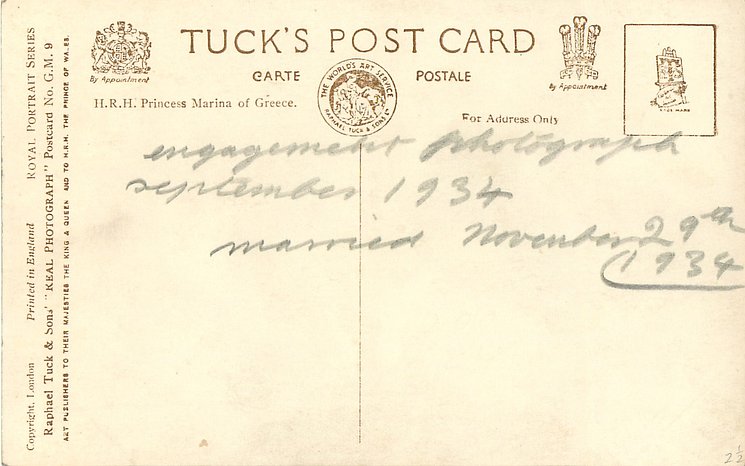 TUCK'S POST CARD
CARTE POSTALE
By Appointment
By Appointment
THE WORLD'S ART SERVICE
RAPHAEL TUCK & SONS LD
H.R.H. Princess Marina of Greece.
For Address Only
TRADE MARK
engagement photograph
september 1934
married November 29th
1934
Copyright, London Printed in England ROYAL PORTRAIT SERIES
Raphael Tuck & Sons' "REAL PHOTOGRAPH" Postcard No. G.M. 9
ART PUBLISHERS TO THEIR MAJESTIES THE KING & QUEEN AND TO H.R.H. THE PRINCE OF WALES.
2½